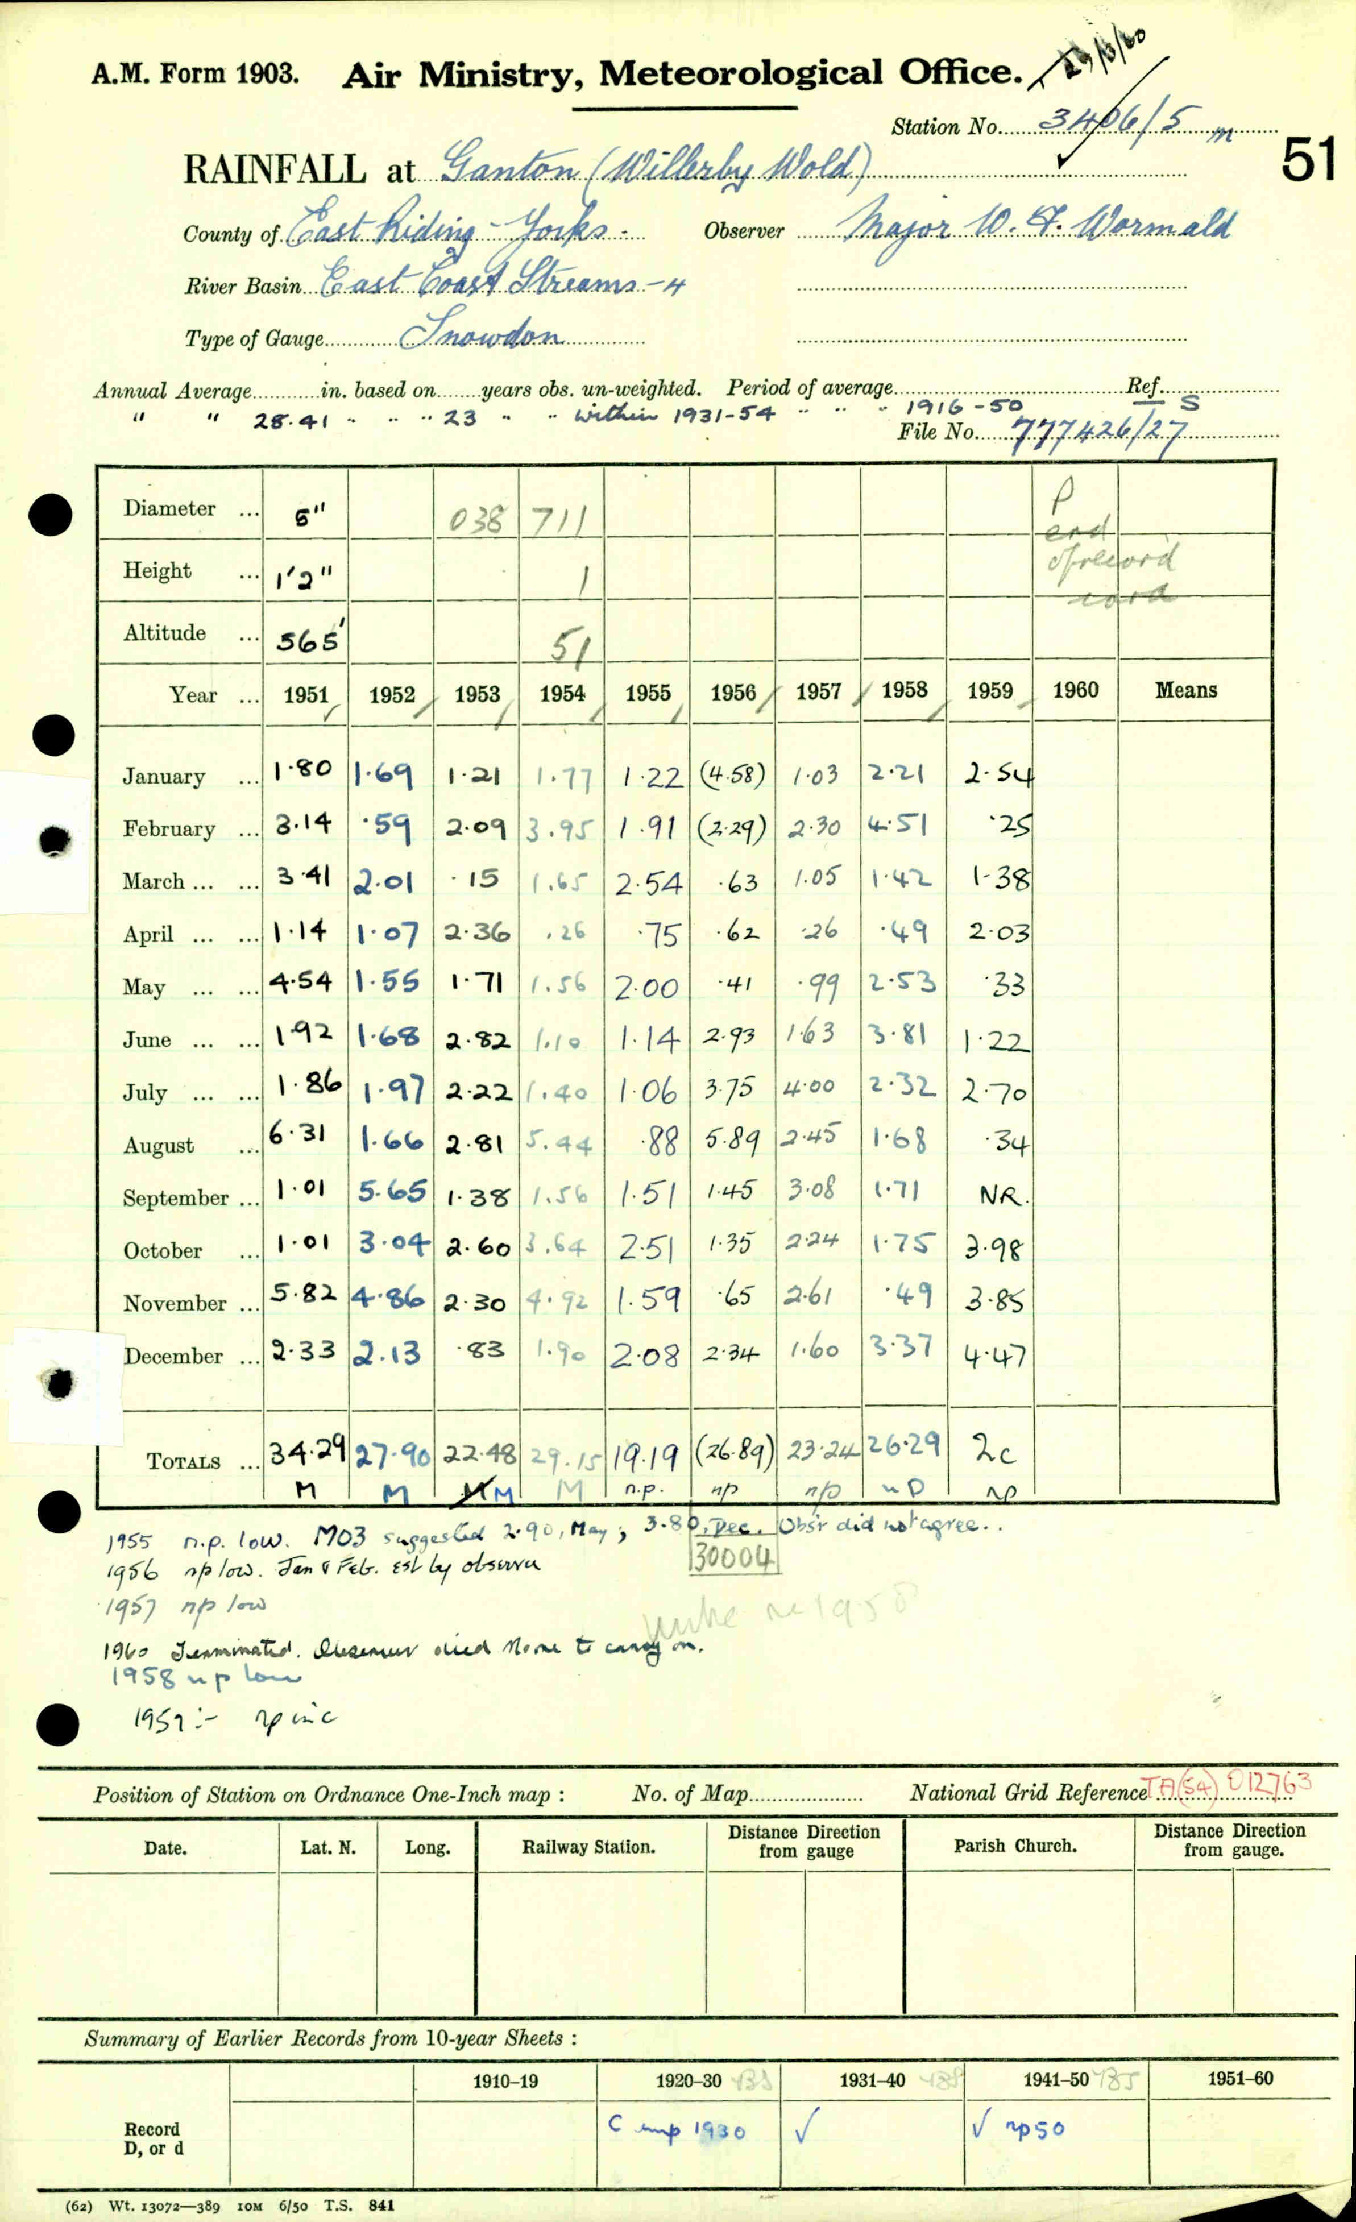 A.M. Form 1903. Air Ministry, Meteorological Office. 29/3/60
Station No. 3406/5 m
51
RAINFALL at Ganton (Willerby Wold)
County of East Riding - Yorks. Observer Major W. F. Wormald
River Basin East Coast Streams - 4
Type of Gauge Snowdon
Annual Average in. based on years obs. un-weighted. Period of average Ref.
" " 28.41 " " " 23 " " within 1931-54 " " " 1916-50 S
File No. 777426/27
Diameter ... 5" 038 711 P
end
Height ... 1'2" 1 of record
card
Altitude ... 565' 51
Year ... 1951 1952 1953 1954 1955 1956 1957 1958 1959 1960 Means
January ... 1.80 1.69 1.21 1.77 1.22 (4.58) 1.03 2.21 2.54
February ... 3.14 .59 2.09 3.95 1.91 (2.29) 2.30 4.51 .25
March ... ... 3.41 2.01 .15 1.65 2.54 .63 1.05 1.42 1.38
April ... ... 1.14 1.07 2.36 .26 .75 .62 .26 .49 2.03
May ... ... 4.54 1.55 1.71 1.56 2.00 .41 .99 2.53 .33
June ... ... 1.92 1.68 2.82 1.10 1.14 2.93 1.63 3.81 1.22
July ... ... 1.86 1.97 2.22 1.40 1.06 3.75 4.00 2.32 2.70
August ... 6.31 1.66 2.81 5.44 .88 5.89 2.45 1.68 .34
September ... 1.01 5.65 1.38 1.56 1.51 1.45 3.08 1.71 NR.
October ... 1.01 3.04 2.60 3.64 2.51 1.35 2.24 1.75 3.98
November ... 5.82 4.86 2.30 4.92 1.59 .65 2.61 .49 3.85
December ... 2.33 2.13 .83 1.90 2.08 2.34 1.60 3.37 4.47
TOTALS ... 34.29 27.90 22.48 29.15 19.19 (26.89) 23.24 26.29 2c
M M M M M n.p. np np np np
1955 n.p. low. MO3 suggested 2.90, May; 3.80, Dec. Obs'r did not agree..
30004
1956 np low. Jan & Feb. est by observer
1957 np low
1958
1960 Terminated. Observer died None to carry on.
1958 np low
1959 :- np inc
Position of Station on Ordnance One-Inch map : No. of Map National Grid Reference TA(54) 012763
Date. Lat. N. Long. Railway Station. Distance from Direction gauge Parish Church. Distance from Direction gauge.
Summary of Earlier Records from 10-year Sheets :
1910–19 1920–30 1931–40 1941–50 1951–60
Record
D, or d
C inp 1930 ✓ ✓ np50
(62) Wt. 13072—389 10M 6/50 T.S. 841